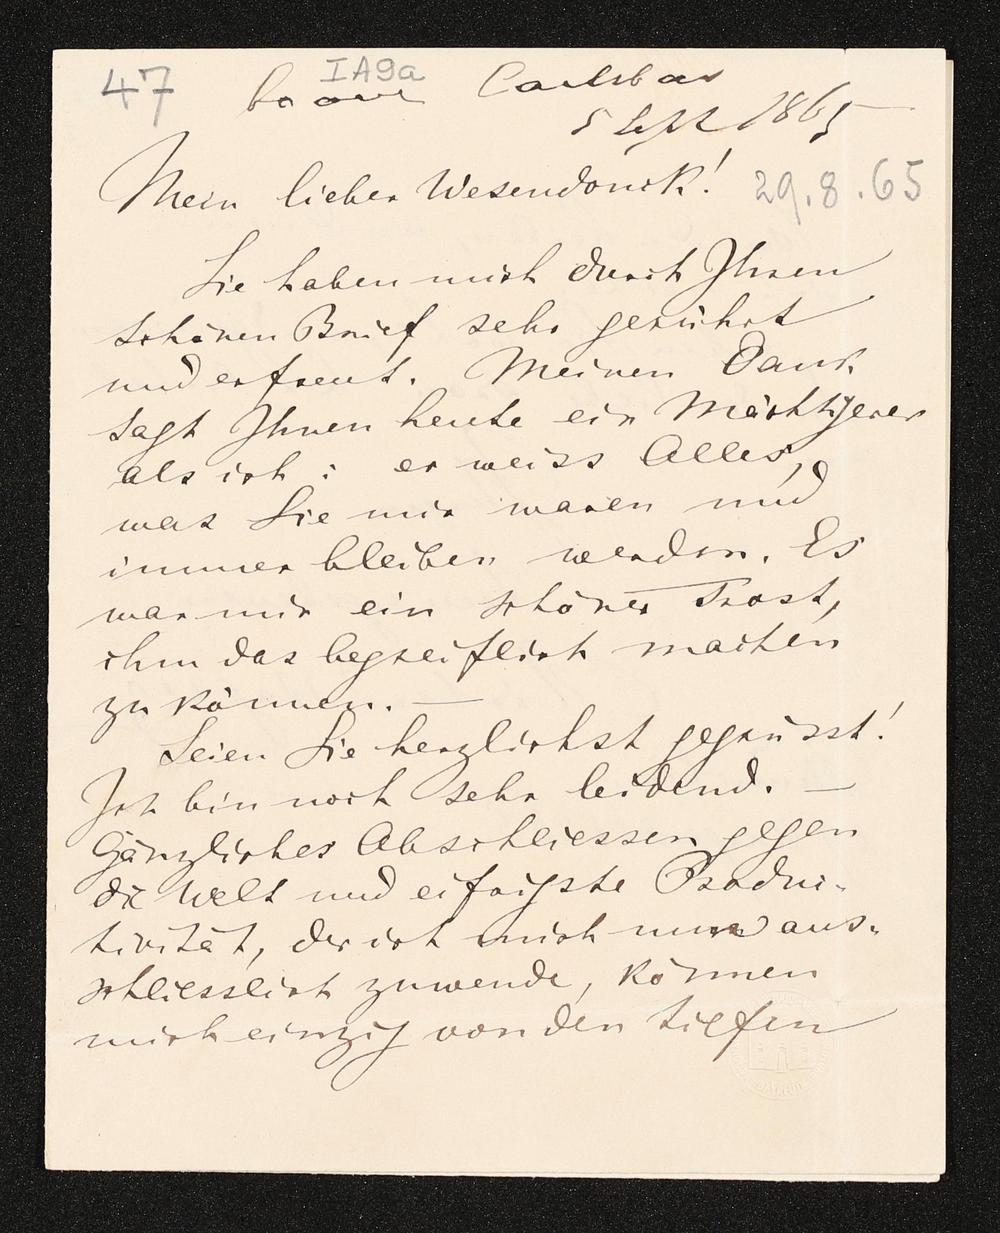 47
IA9a
Carlsbad
5 Sept 1865
Mein lieber Wesendonck!
29.8.65
Sie haben mich durch Ihren
schönen Brief sehr gerührt
und erfreut. Meinen Dank
sagt Ihnen heute ein Mächtigerer
als ich: er weiss Alles,
was Sie mir waren und
immer bleiben werden. Es
war mir ein schöner Trost,
ihm das begreiflich machen
zu können. —
Seien Sie herzlichst gegrüsst!
Ich bin noch sehr leidend. —
Gänzliches Abschliessen gegen
die Welt und eifrigste Produc-
tivität, der ich mich nun aus-
schliesslich zuwende, können
mich einzig von den tiefen